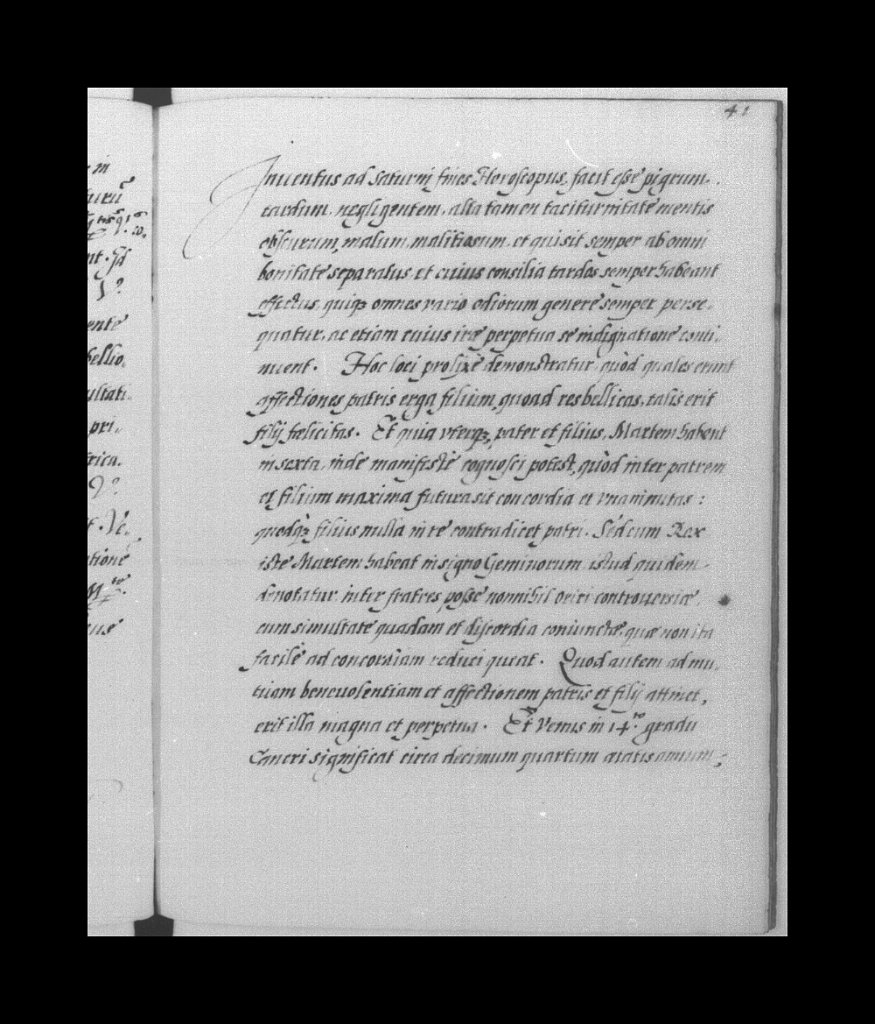 41
Inuentus ad Saturni fines Horoscopus, facit esse pigrum.
tardum, negligentem, alta tamen taciturnitate mentis
obscurum, malum, malitiosum, et qui sit semper ab omni
bonitate separatus et cuius consilia tardos semper habeant
effectus, quiq₃ omnes vario odiorum genere semper perse-
quatur, ac etiam cuius iræ perpetua se indignatione conti-
nuent. Hoc loci prolixè demonstratur, quòd quales erunt
affectiones patris erga filium, quoad res bellicas, talis erit
filij fælicitas. Et quia vterq₃, pater et filius, Martem habent
in sexta, inde manifestè cognosci potest, quòd inter patrem
et filium maxima futura sit concordia et vnanimitas:
quodq₃ filius nulla in re contradicet patri. Sed cum Rex
iste Martem habeat in signo Geminorum, istud quidem
denotatur inter fratres posse nonnihil oriri controuersiæ,
cum simultate quadam et discordia coniunctæ, quæ non ita
facilè ad concordiam reduci queat. Quod autem ad mu-
tuam beneuolentiam et affectionem patris et filij attinet,
erit illa magna et perpetua. Et Venus in 14.to gradu
Cancri significat circa decimum quartum ætatis annum,